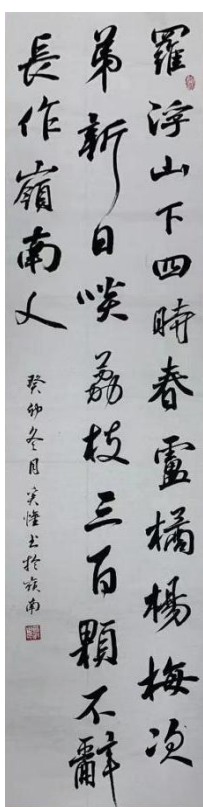 羅浮山下四時春盧橘楊梅次
弟新日啖荔枝三百顆不辭
長作嶺南人
癸卯冬月 書於嶺南